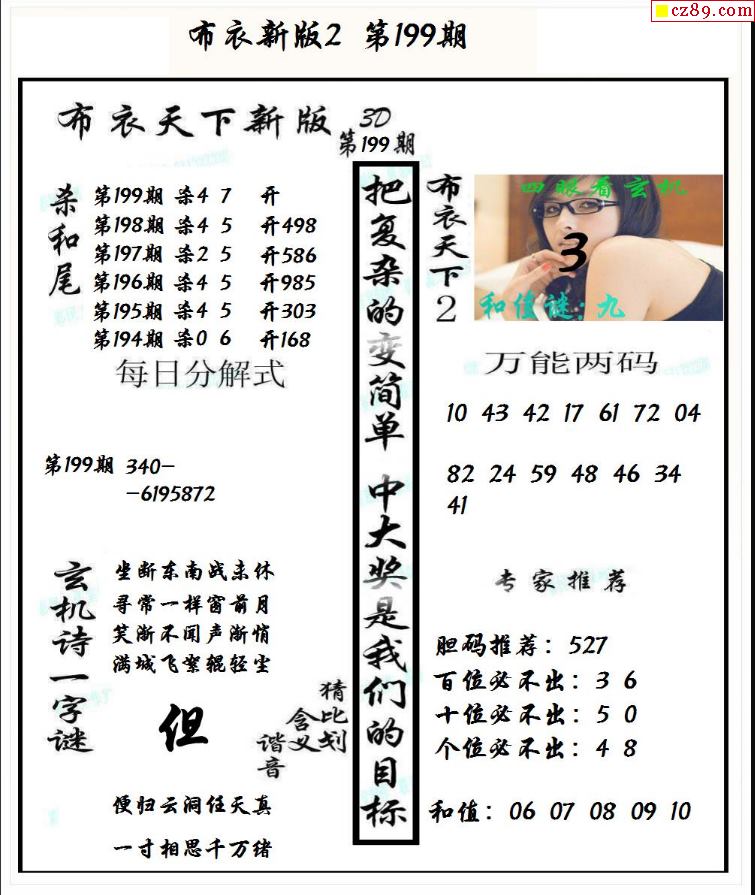 cz89.com
布衣新版2 第199期
布衣天下新版 3D
第199期
杀和尾
第199期 杀4 7 开
第198期 杀4 5 开498
第197期 杀2 5 开586
第196期 杀4 5 开985
第195期 杀4 5 开303
第194期 杀0 6 开168
每日分解式
第199期 340-
-6195872
玄机诗一字谜
坐断东南战未休
寻常一样窗前月
笑渐不闻声渐悄
满城飞絮辊轻尘
但
猜比划
含义
谐音
便归云洞任天真
一寸相思千万绪
把复杂的变简单 中大奖是我们的目标
布衣天下2
四眼看玄机
3
和值谜：九
万能两码
10 43 42 17 61 72 04
82 24 59 48 46 34
41
专家推荐
胆码推荐：527
百位必不出：3 6
十位必不出：5 0
个位必不出：4 8
和值：06 07 08 09 10